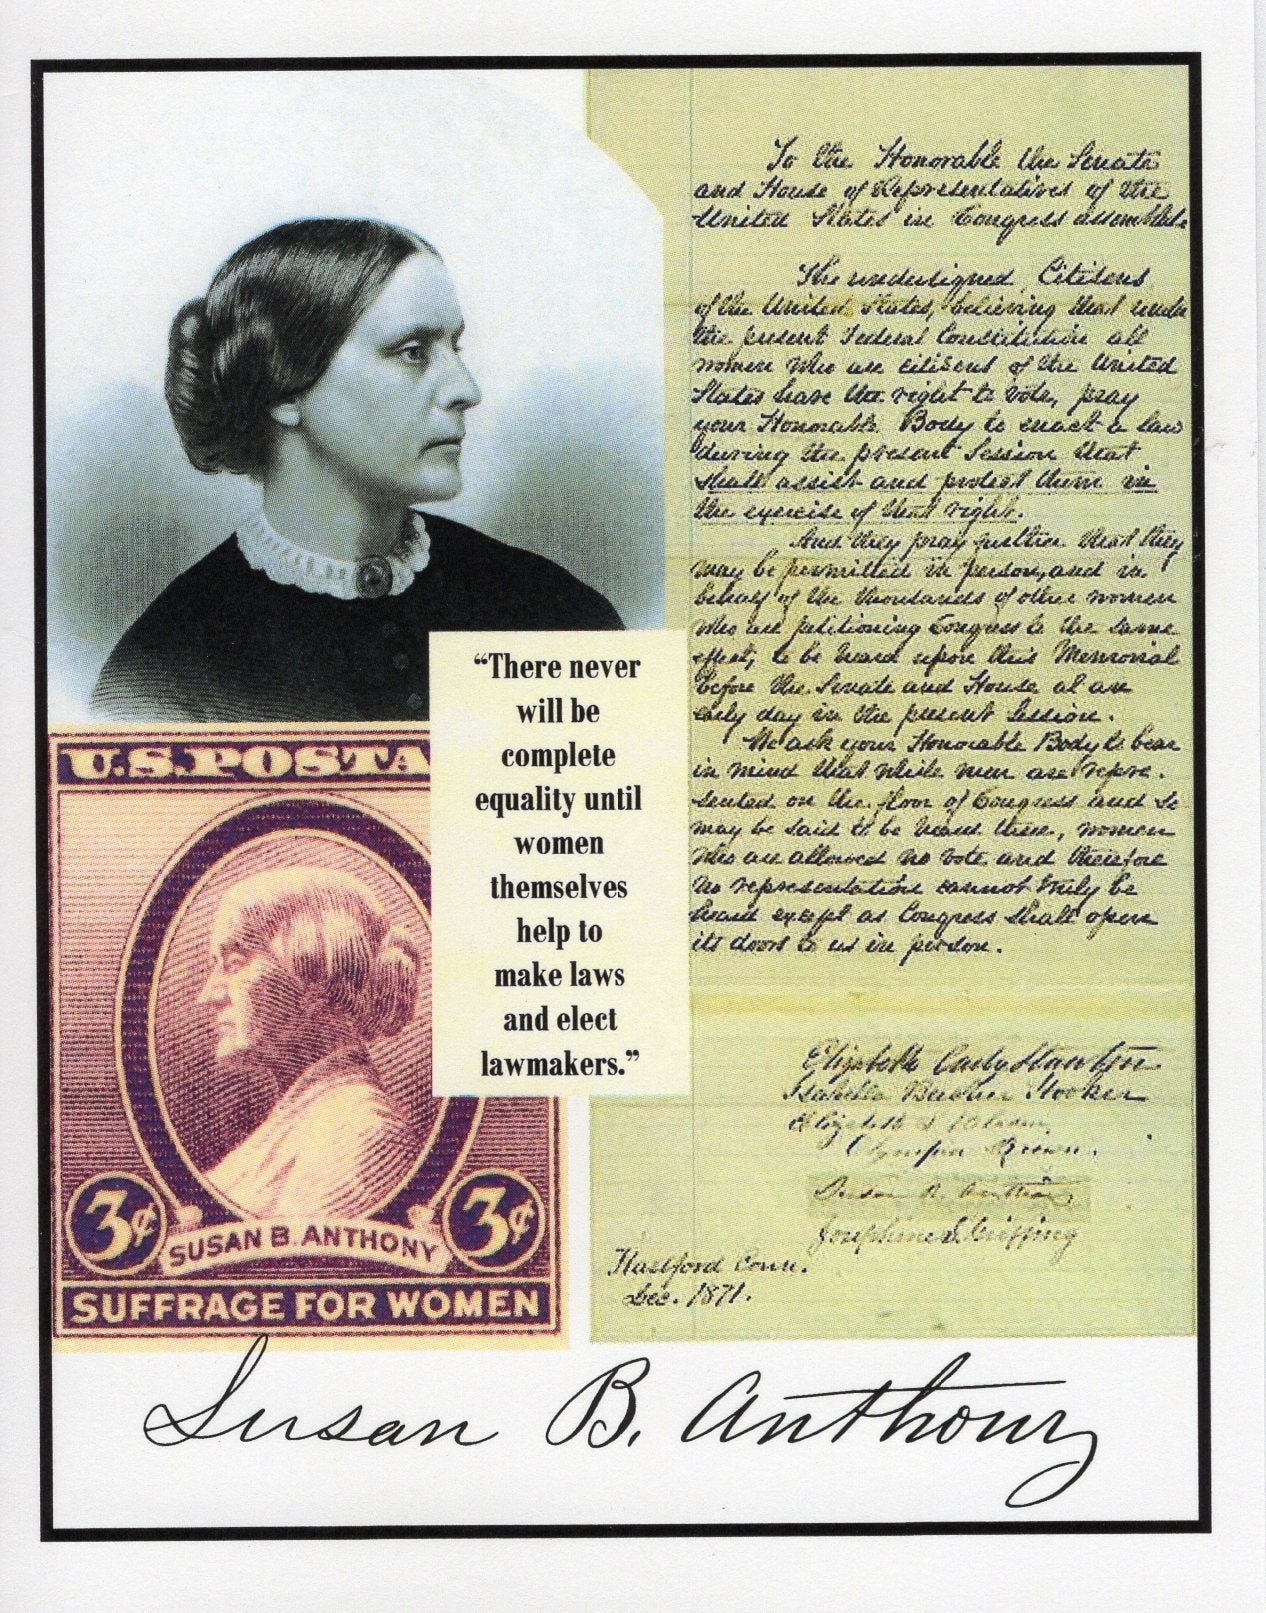 To the Honorable the Senate
and House of Representatives of the
United States in Congress assembled.
The undersigned, Citizens
of the United States, believing that under
the present Federal Constitution all
women who are citizens of the United
States have the right to vote, pray
your Honorable Body to enact a law
during the present Session that
shall assist and protect them in
the exercise of that right.
And they pray further that they
may be permitted in person, and in
behalf of the thousands of other women
who are petitioning Congress to the same
effect, to be heard upon this Memorial
before the Senate and House at an
early day in the present Session.
We ask your Honorable Body to bear
in mind that while men are repre-
sented on the floor of Congress and so
may be said to be heard there, women
who are allowed no vote and therefore
no representation cannot truly be
heard except as Congress shall open
its doors to us in person.
Elizabeth Cady Stanton
Isabella Beecher Hooker
Elizabeth L Bladen
Olympia Brown.
Susan B. Anthony
Josephine S. Griffing
Hartford Conn.
Dec. 1871.
“There never
will be
complete
equality until
women
themselves
help to
make laws
and elect
lawmakers.”
U.S. POSTA
3¢ 3¢
SUSAN B. ANTHONY
SUFFRAGE FOR WOMEN
Susan B. Anthony